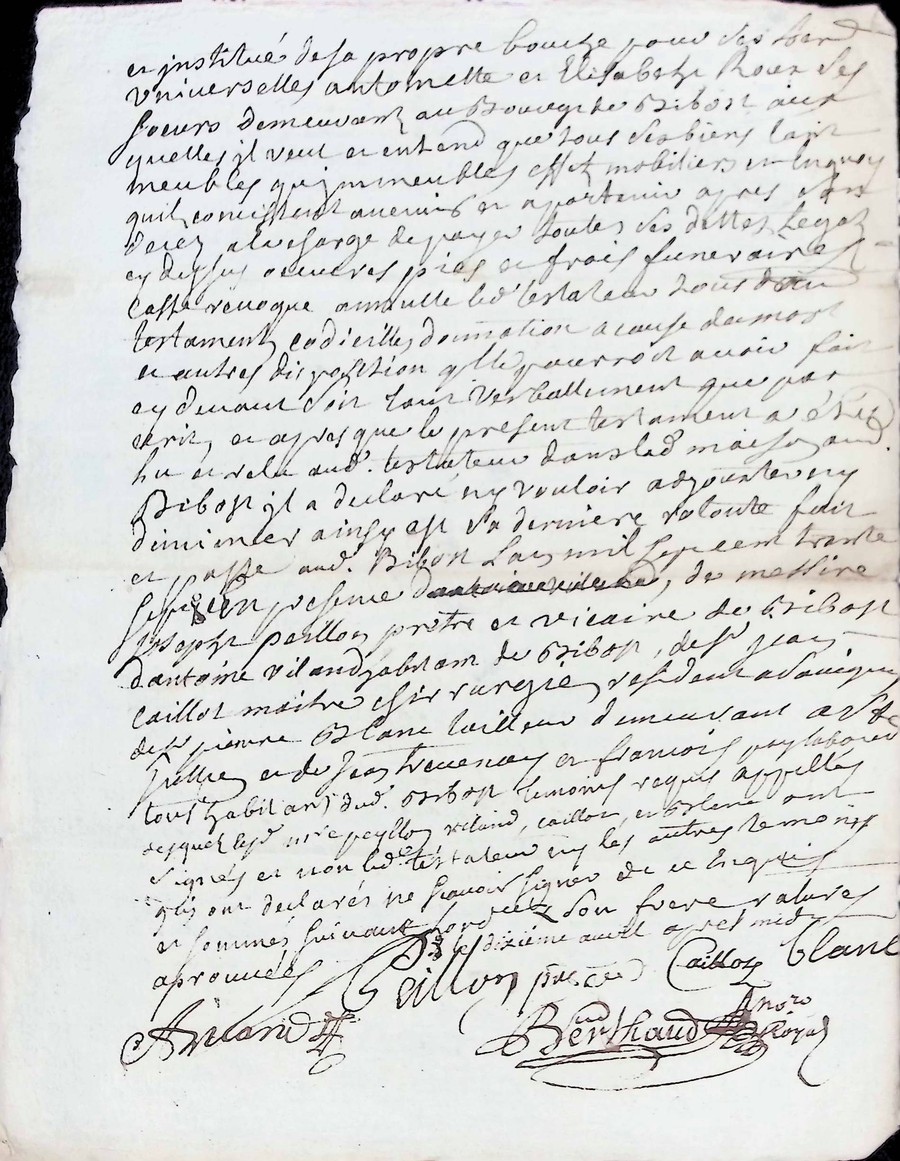 et institué de sa propre bouche pour ses herd
vniverselles antoinette et Elisabeth Roux ses
soeurs demeurant au Bourg de Bibost aux
quelles il veut et entend que tous ses biens tant
meubles qu'immeubles effets mobiliers en
quil consistent avenir et apartenir apres son
decez a la charge de payer toutes ses dettes legat
cy dessus oeuvres pies et frais funeraires
casse revoque annulle led. testateur tous
testament codicilles donnation a cause de mort
et autres disposition quil pourroit avoir fait
cy devant soit tant verballement que par
ecrit, et apres que le present testament a été
lu et relu aud. testateur dans lad. maison aud.
Bibost il a declaré ny vouloir adjouster ny
diminuer ainsy est sa derniere volonte fait
et passé aud. Bibost L'an mil sept cent trente
sept en presence de messire
joseph peillon prêtre et vicaire de Bibost
d'antoine viland habitant de Bibost, de sr jean
caillot maitre chirurgien resident a Savigny
de sr pierre Blanc tailleur demeurant a St
jullien et de jean trevenay et francois pey laboureur
tous habitans dud. Bibost temoins requis appellés
desquels led. mre peyllon viland, caillot, et Blanc ont
signés et non led. testateur ny les autres temoins
qui ont declarés ne scavoir signer de ce enquis
et sommés suivant l'ord son frere ratures
aprouvées le dixième avril apres midy
Peillon Caillot blanc
Aviland Berthaud nore Royal